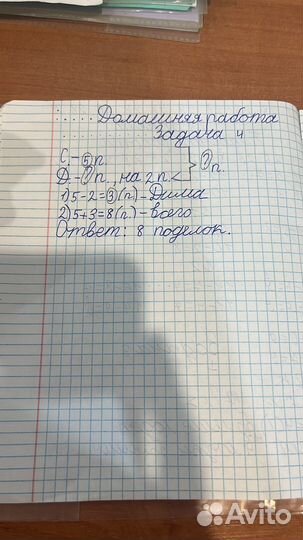 Домашняя работа
Задача 4
С. - 5 п.
Д. - ? п., на 2 п. <
? п.
1) 5 - 2 = 3 (п.) - Дима
2) 5 + 3 = 8 (п.) - всего
Ответ: 8 поделок.
Avito